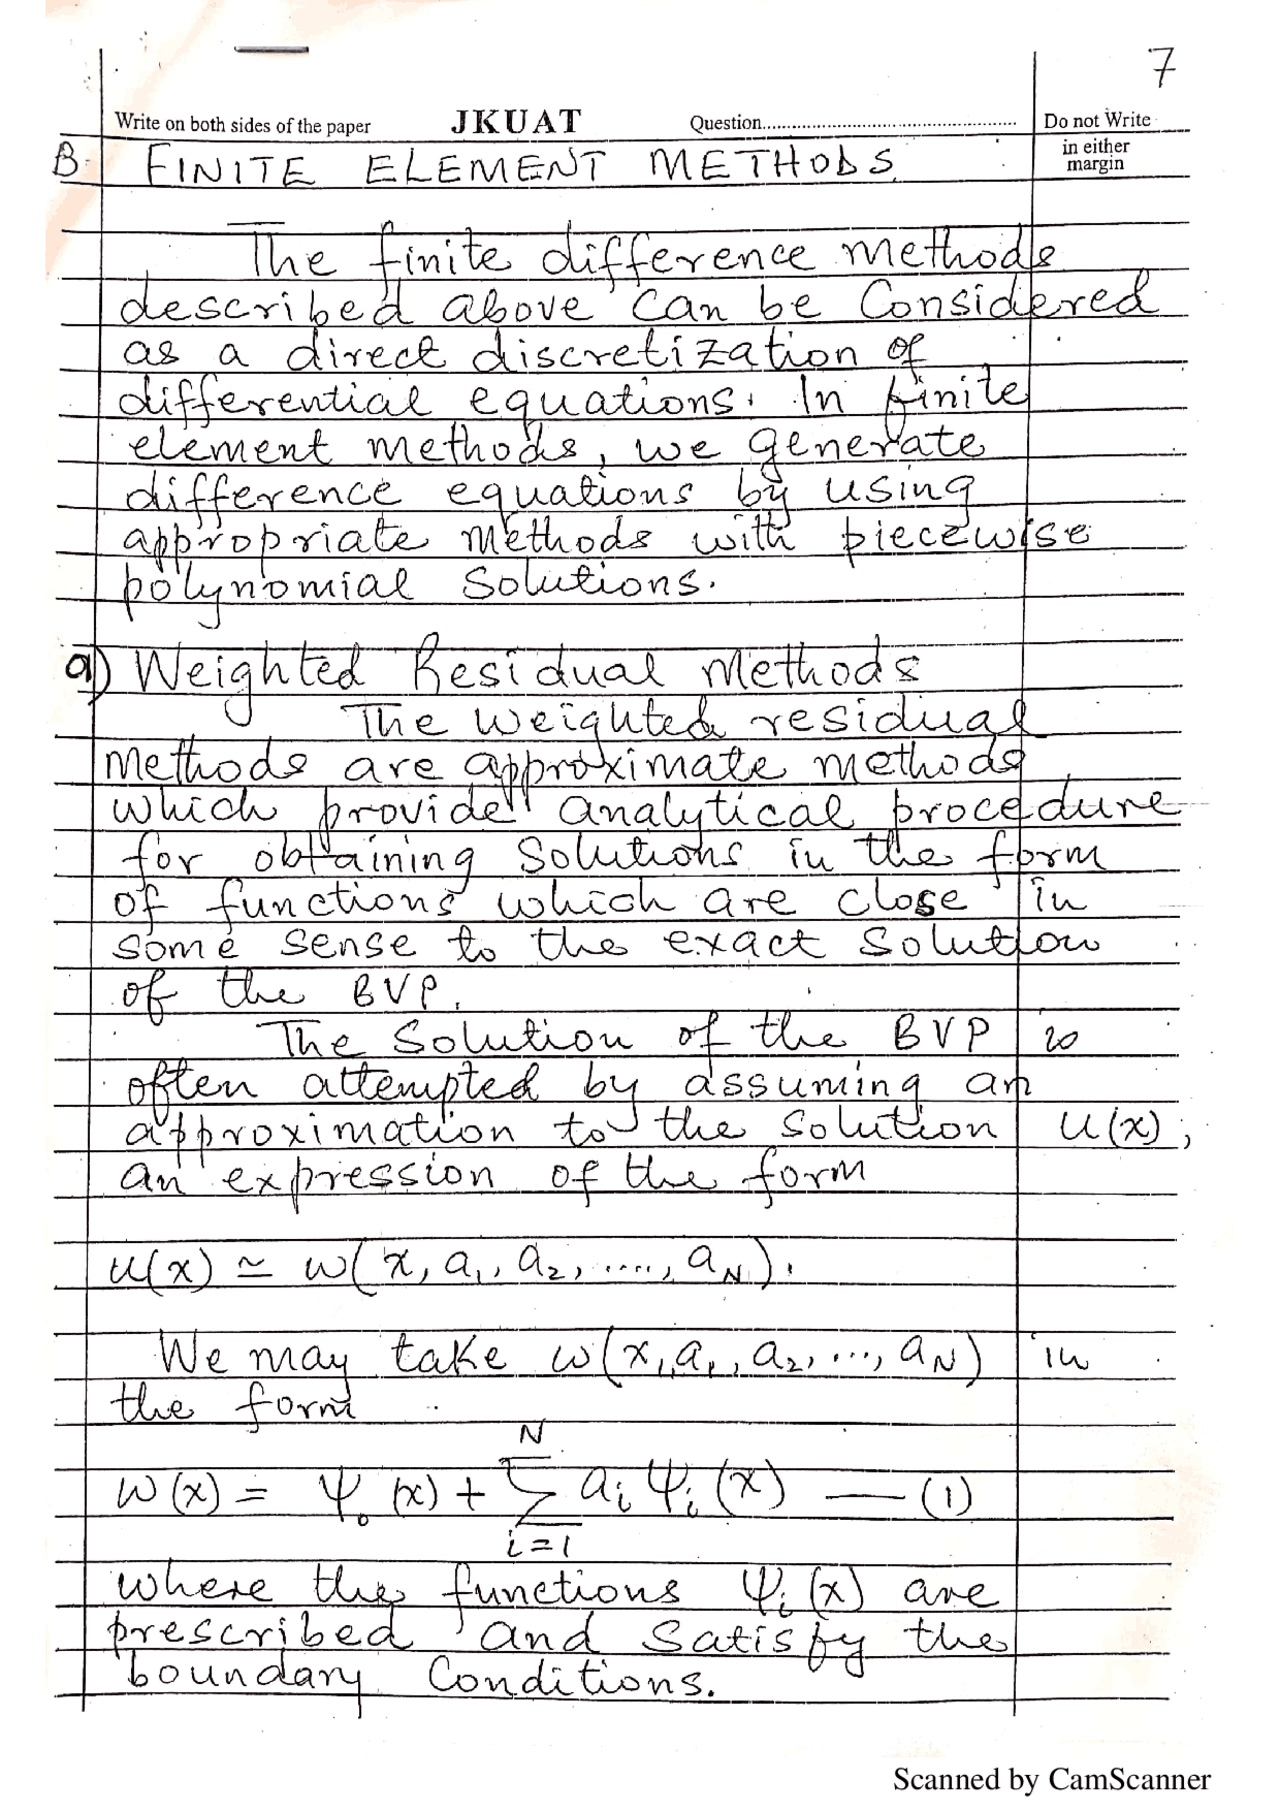 7
Write on both sides of the paper JKUAT Question.......................................................... Do not Write
in either
margin
B. FINITE ELEMENT METHODS.
The finite difference methods
described above can be Considered
as a direct discretization of
differential equations. In finite
element methods, we generate
difference equations by using
appropriate methods with piecewise
polynomial Solutions.
a) Weighted Residual Methods
The weighted residual
methods are approximate methods
which provide analytical procedure
for obtaining Solutions in the form
of functions which are close in
some sense to the exact Solution
of the BVP.
The Solution of the BVP is
often attempted by assuming an
approximation to the Solution u(x),
an expression of the form
u(x) ≃ w(x, a₁, a₂, ...., a_N).
We may take w(x, a₁, a₂, ..., a_N) in
the form
w(x) = Ψ₀(x) + Σ_{i=1}^{N} aᵢ Ψᵢ(x) — (1)
where the functions Ψᵢ(x) are
prescribed and satisfy the
boundary Conditions.
Scanned by CamScanner